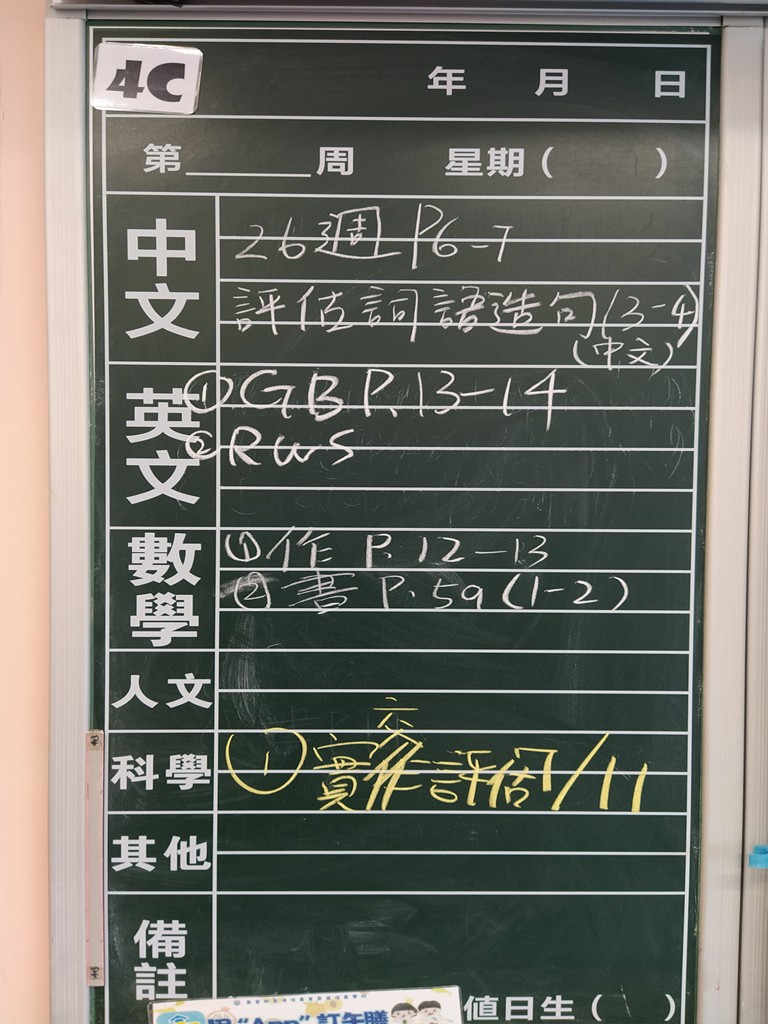 4C
年 月 日
第 周 星期( )
中文
26週 P6-7
評估詞語造句(3-4)
(中文)
英文
①GB P.13-14
②RWS
數學
①作 P.12-13
②書 P.59(1-2)
人文
科學
六
①實作評估 7/11
其他
備註
用"App"訂午膳
值日生( )